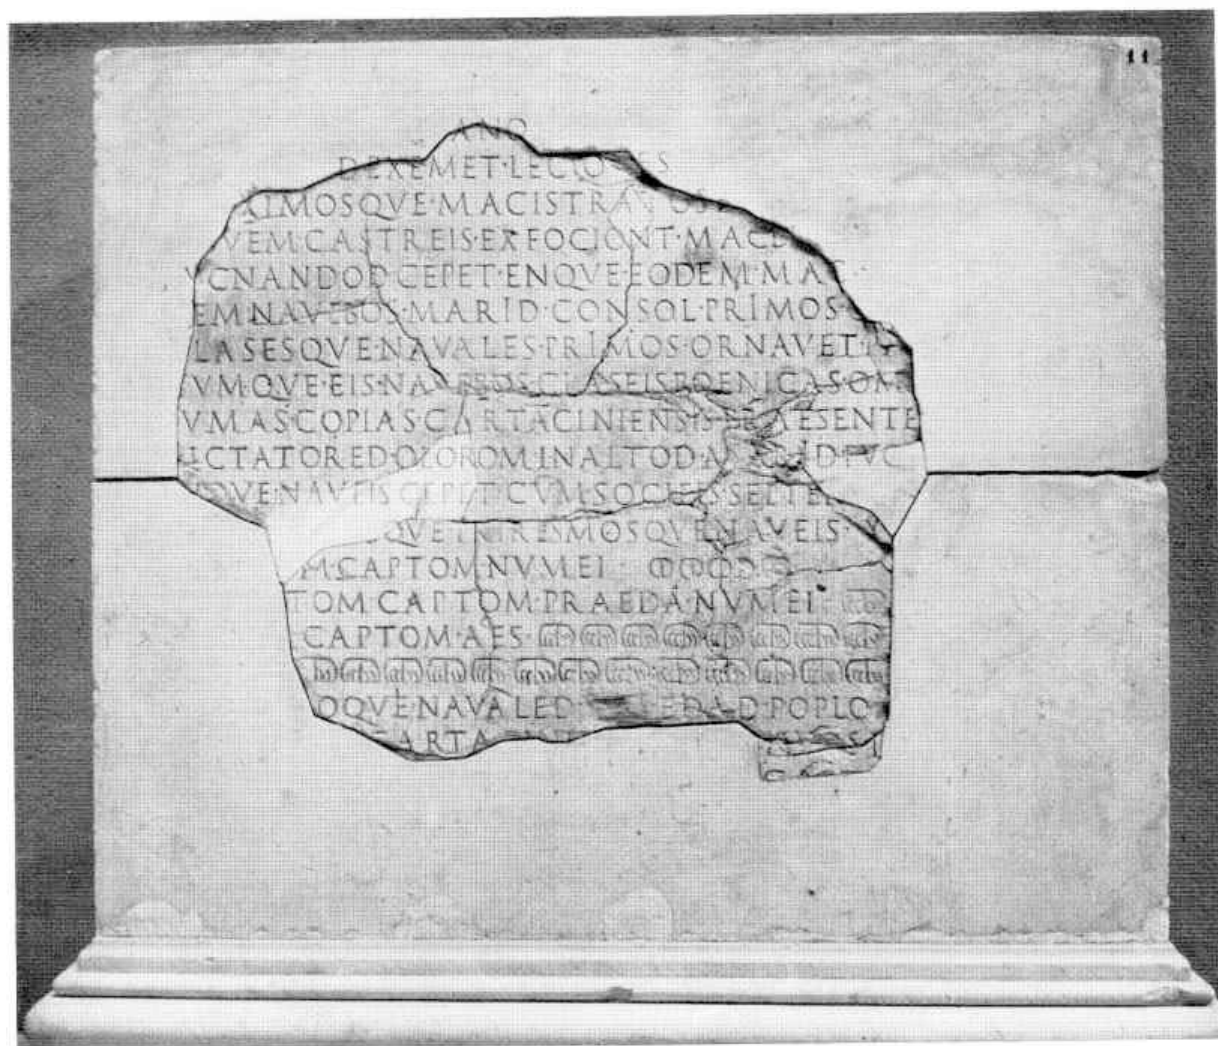 11
ANO
D EXEMET LECIO S
XIMOSQVE MACISTRATOS
VEM CASTREIS EXFOCIONT MACEL
VCNANDOD CEPET ENQVE EODEM MAC
EM NAVEBOS MARID CONSOL PRIMOS
LASESQVE NAVALES PRIMOS ORNAVET
VMQVE EIS NAVEBOS CLASEIS POENICAS OM
VMAS COPIAS CARTACINIENSIS PRAESENTE
ICTATORED OLOROM IN ALTOD MARID PVC
QVE NAVEIS CEPET CVM SOCIEIS SEPTER
QVE TRIRESMOSQVE NAVEIS X
M CAPTOM NVMEI ↀↀↀ
TOM CAPTOM PRAEDA NVMEI ↈ
CAPTOM AES ↈↈↈↈↈↈↈↈ
ↈↈↈↈↈↈↈↈↈↈↈↈↈ
OQVE NAVALED PRAEDAD POPLO
CARTA